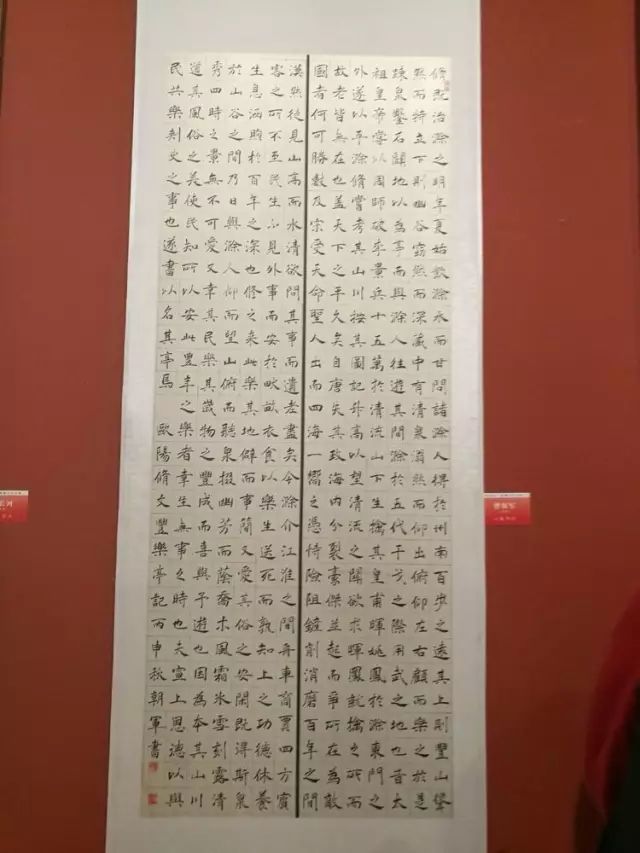 修既治滁之明年夏始飲滁水而甘問諸滁人得於州南百步之遠其上則豐山聳
然而特立下則幽谷窈然而深藏中有清泉滃然而仰出俯仰左右顧而樂之於是
疎泉鑿石闢地以為亭而與滁人往遊其間滁於五代干戈之際用武之地也昔太
祖皇帝嘗以周師破李景兵十五萬於清流山下生擒其皇甫暉姚鳳於滁東門之
外遂以平滁修嘗考其山川按其圖記升高以望清流之關欲求暉鳳就擒之所而
故老皆無在也蓋天下之平久矣自唐失其政海內分裂豪傑並起而爭所在為敵
國者何可勝數及宋受天命聖人出而四海一嚮之憑恃險阻鏟削消磨百年之間
漠然徒見山高而水清欲問其事而遺老盡矣今滁介江淮之間舟車商賈四方賓
客之所不至民生不見外事而安於畎畝衣食以樂生送死而孰知上之功德休養
生息涵煦於百年之深也修之來此樂其地僻而事簡又愛其俗之安閑既得斯泉
於山谷之間乃日與滁人仰而望山俯而聽泉掇幽芳而蔭喬木風霜冰雪刻露清
秀四時之景無不可愛又幸其民樂其歲物之豐成而喜與予遊也因為本其山川
道其風俗之美使民知所以安此豐年之樂者幸生無事之時也夫宣上恩德以與
民共樂刺史之事也遂書以名其亭焉 歐陽脩文豐樂亭記丙申秋朝軍書